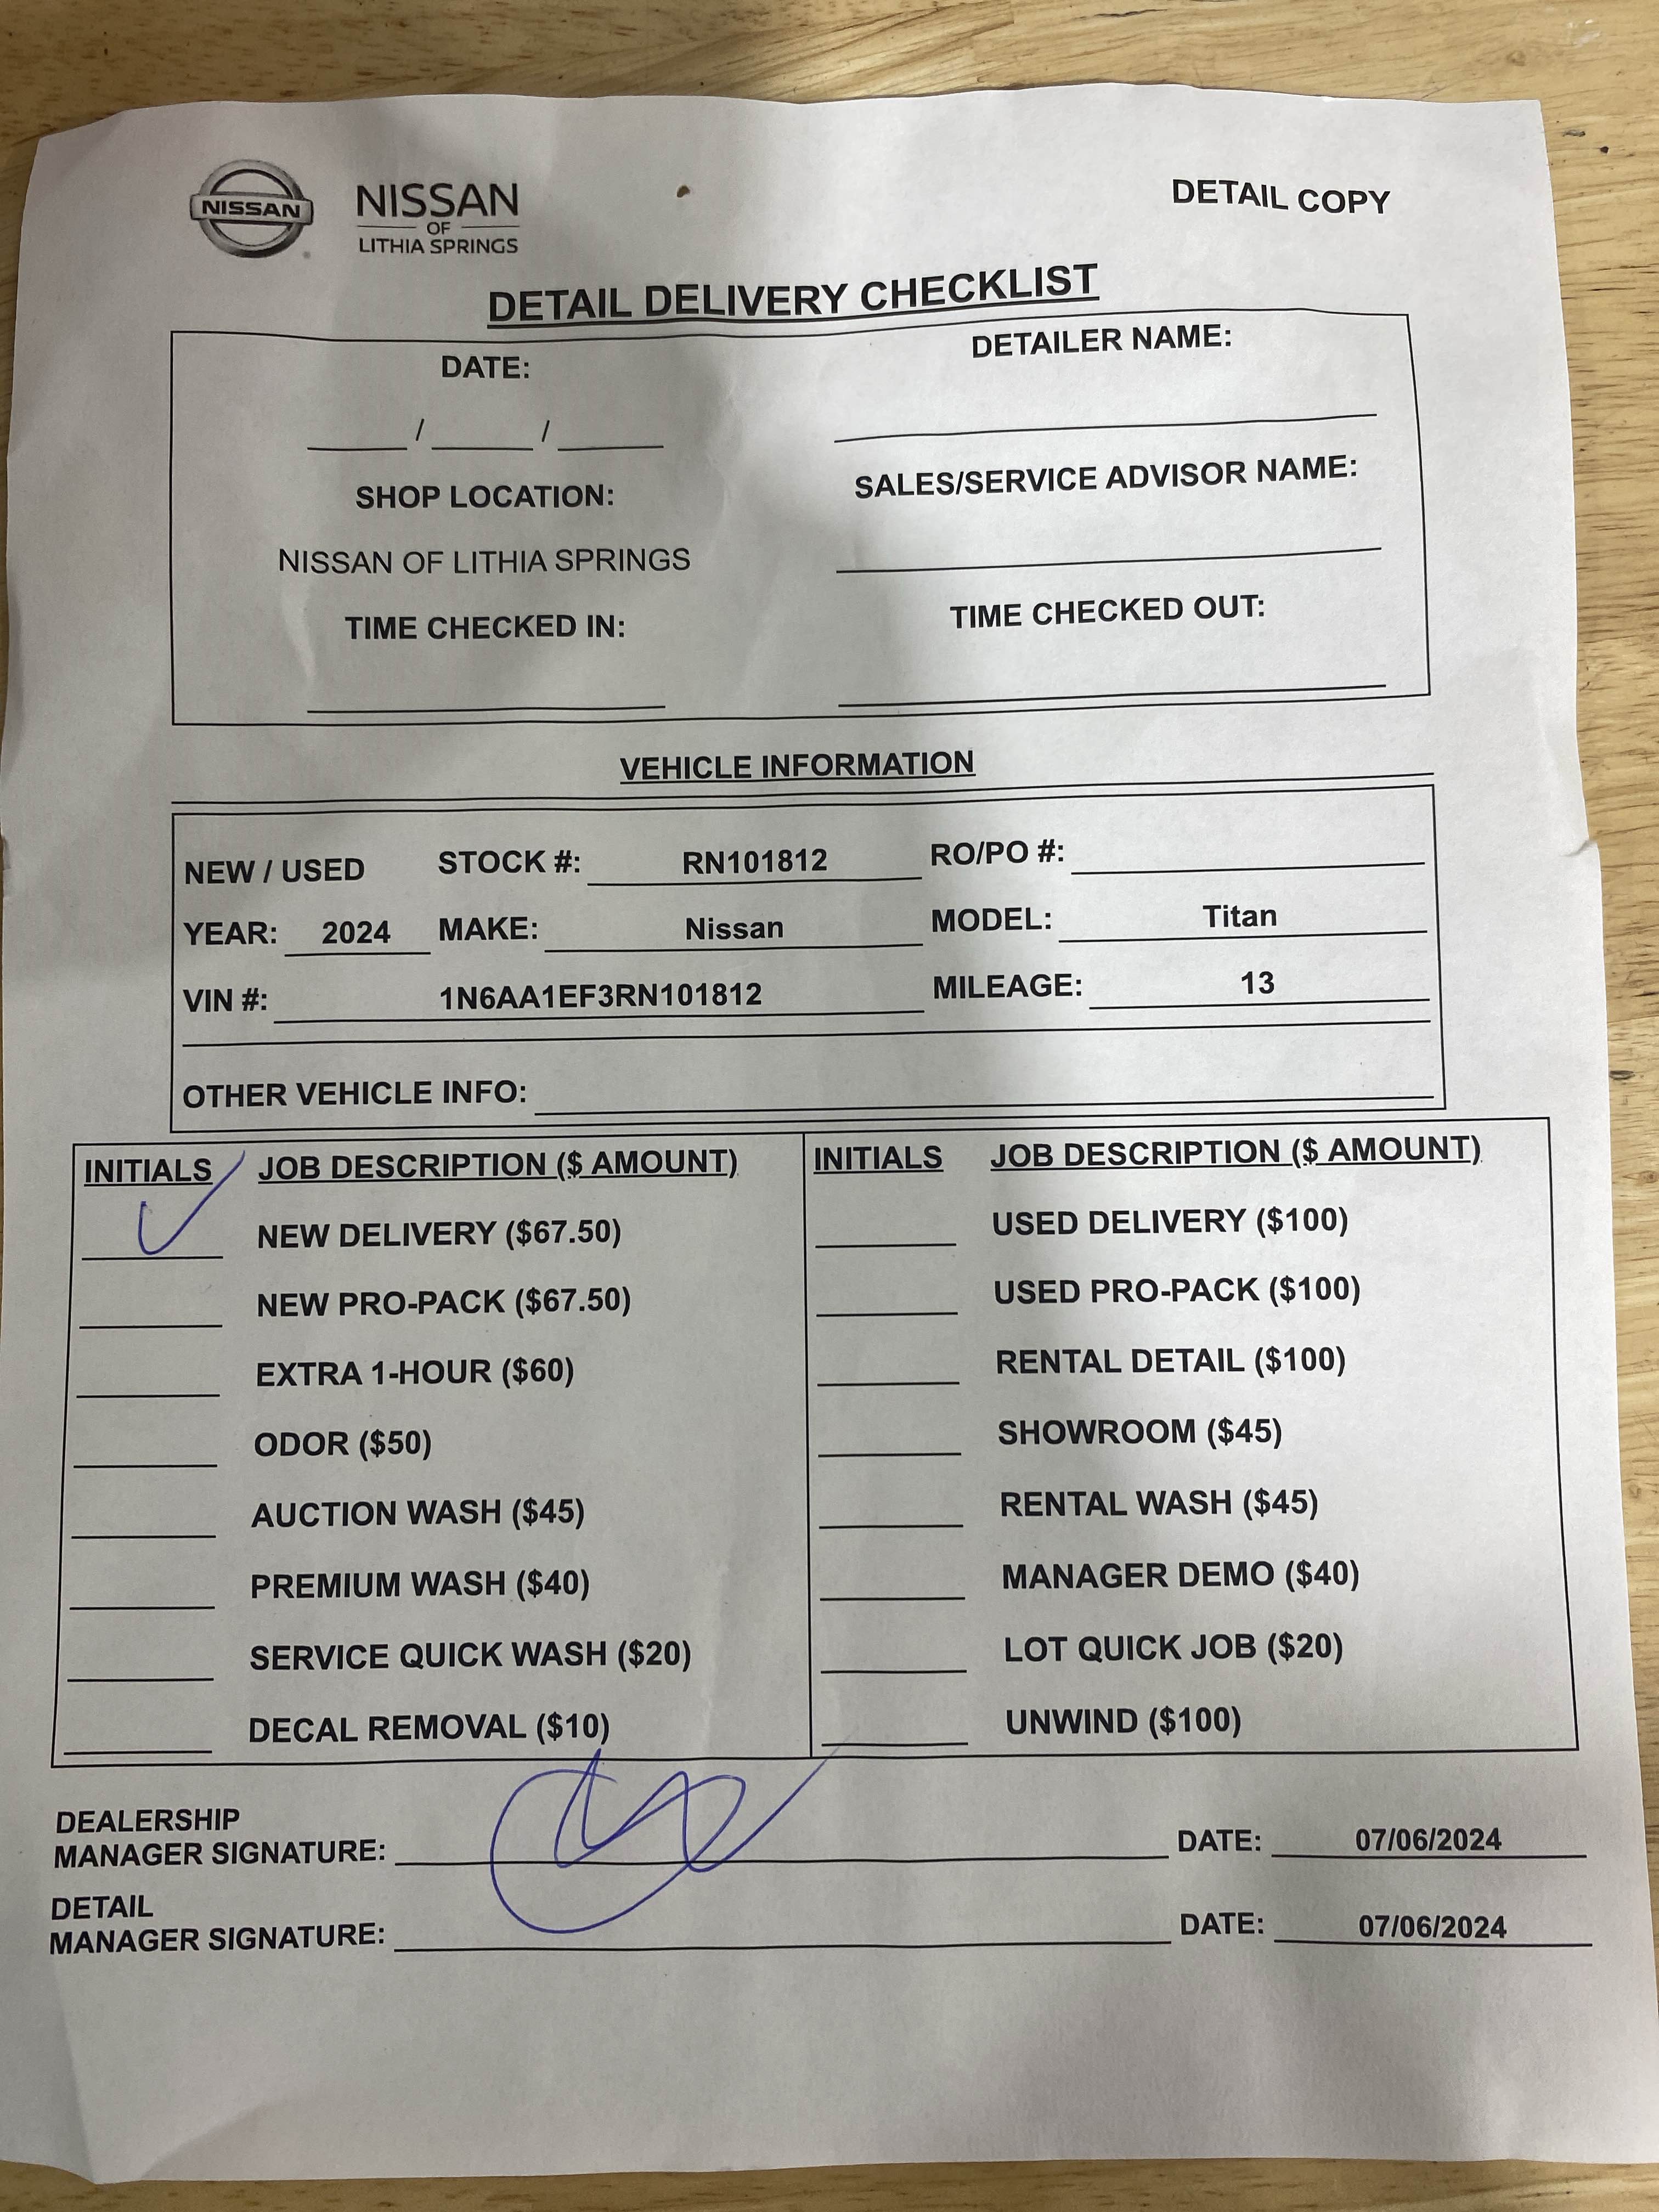 NISSAN
NISSAN
OF
LITHIA SPRINGS
DETAIL COPY
DETAIL DELIVERY CHECKLIST
DATE:
DETAILER NAME:
____ / ____ / ____
SHOP LOCATION:
SALES/SERVICE ADVISOR NAME:
NISSAN OF LITHIA SPRINGS
TIME CHECKED IN:
TIME CHECKED OUT:
VEHICLE INFORMATION
NEW / USED STOCK #: RN101812 RO/PO #:
YEAR: 2024 MAKE: Nissan MODEL: Titan
VIN #: 1N6AA1EF3RN101812 MILEAGE: 13
OTHER VEHICLE INFO:
INITIALS JOB DESCRIPTION ($ AMOUNT) INITIALS JOB DESCRIPTION ($ AMOUNT)
NEW DELIVERY ($67.50) USED DELIVERY ($100)
NEW PRO-PACK ($67.50) USED PRO-PACK ($100)
EXTRA 1-HOUR ($60) RENTAL DETAIL ($100)
ODOR ($50) SHOWROOM ($45)
AUCTION WASH ($45) RENTAL WASH ($45)
PREMIUM WASH ($40) MANAGER DEMO ($40)
SERVICE QUICK WASH ($20) LOT QUICK JOB ($20)
DECAL REMOVAL ($10) UNWIND ($100)
DEALERSHIP
MANAGER SIGNATURE: DATE: 07/06/2024
DETAIL
MANAGER SIGNATURE: DATE: 07/06/2024